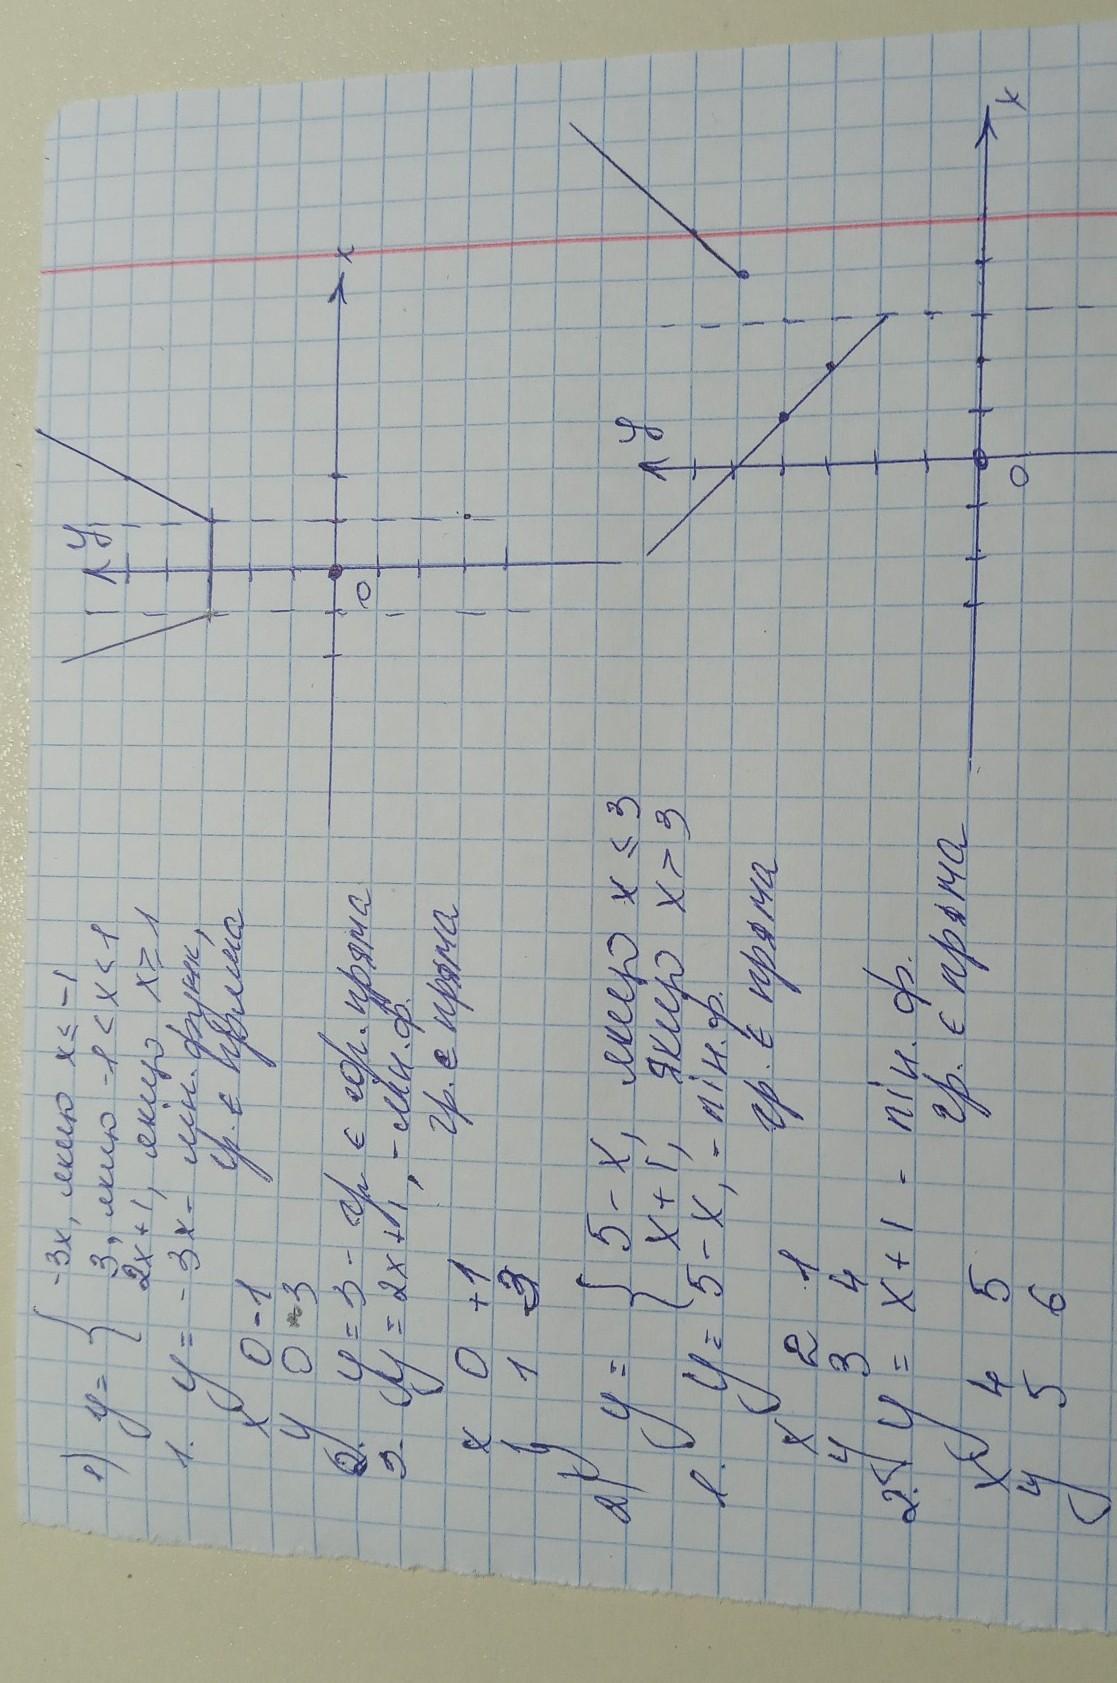 1) y = { -3x, якщо x ≤ -1
3, якщо -1 < x < 1
2x+1, якщо x ≥ 1
1. y = -3x - лін. функ,
гр. є пряма
x 0 -1
y 0 3
2. y = 3 - гр. є гор. пряма
3. y = 2x+1, - лін. ф.
гр. є пряма
x 0 +1
y 1 3
y
x
0
2) y = { 5 - x, якщо x ≤ 3
x + 1, якщо x > 3
1. y = 5 - x, - лін. ф.
гр. є пряма
x 2 1
y 3 4
2. y = x + 1 - лін. ф.
гр. є пряма
x 4 5
y 5 6
y
x
0